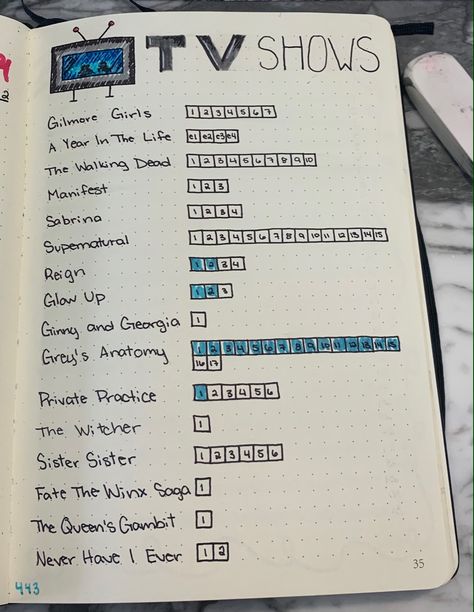 TV SHOWS
Gilmore Girls 1 2 3 4 5 6 7
A Year In The Life e1 e2 e3 e4
The Walking Dead 1 2 3 4 5 6 7 8 9 10
Manifest 1 2 3
Sabrina 1 2 3 4
Supernatural 1 2 3 4 5 6 7 8 9 10 11 12 13 14 15
Reign 1 2 3 4
Glow Up 1 2 3
Ginny and Georgia 1
Grey's Anatomy 1 2 3 4 5 6 7 8 9 10 11 12 13 14 15
16 17
Private Practice 1 2 3 4 5 6
The Witcher 1
Sister Sister 1 2 3 4 5 6
Fate The Winx Saga 1
The Queen's Gambit 1
Never Have I Ever 1 2
35
443